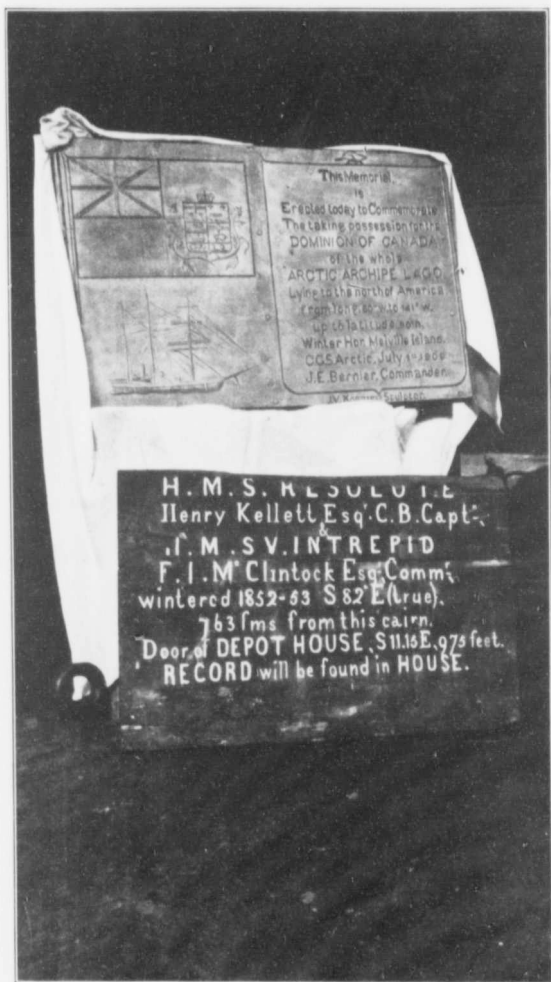 This Memorial,
is
Erected today to Commemorate
The taking possession for the
DOMINION OF CANADA
of the whole
ARCTIC ARCHIPELAGO
Lying to the north of America
from long. to
up to latitude
Winter Hbr. Melville Island.
CGS Arctic, July 1st 1909.
J.E. Bernier. Commander.
Sculptor.
H.M.S. RESOLUTE
Henry Kellett Esqr. C.B. Captn.
&
H.M.S V. INTREPID
F.L. Mc Clintock Esq. Commr.
wintered 1852-53 S 82° E (true).
763 fms from this cairn.
Door of DEPOT HOUSE, S 11.15 E, 975 feet.
RECORD will be found in HOUSE.